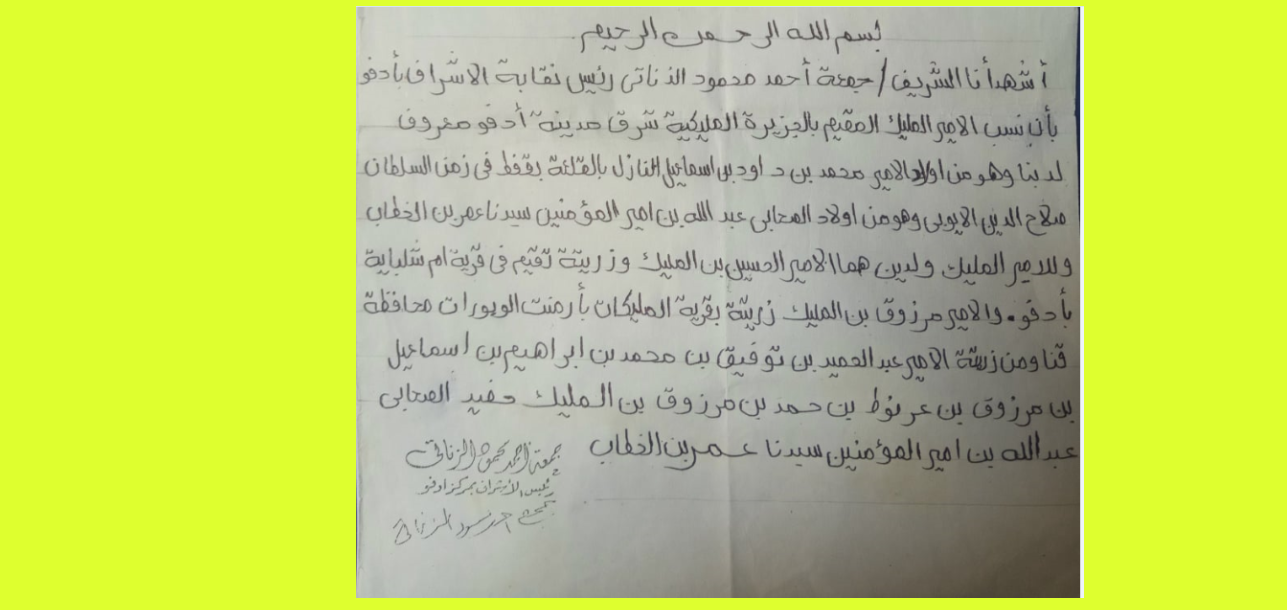 بسم الله الرحمن الرحيم
أشهد أنا الشريف / جمعة أحمد محمود الذناتى رئيس نقابة الاشراف بأدفو
بأن نسب الامير المليك المقيم بالجزيرة المليكية شرق مدينة أدفو معروف
لدينا وهو من اولاد الامير محمد بن داود بن اسماعيل النازل بالقلعة بقفط فى زمن السلطان
صلاح الدين الايوبى وهو من اولاد الصحابى عبد الله بن امير المؤمنين سيدنا عمر بن الخطاب
وللامير المليك ولدين هما الامير الحسين بن المليك وزريتة تقيم فى قرية ام شلباية
بأدفو . والامير مرزوق بن المليك زريتة بقرية المليكان بأرمنت الوبورات محافظة
قنا ومن زريتة الامير عبد الحميد بن توفيق بن محمد بن ابراهيم بن اسماعيل
بن مرزوق بن عرنوط بن حمد بن مرزوق بن المليك حفيد الصحابى
عبد الله بن امير المؤمنين سيدنا عمر بن الخطاب
جمعة احمد محمود الزناتى
رئيس الأشراف بمركز ادفو